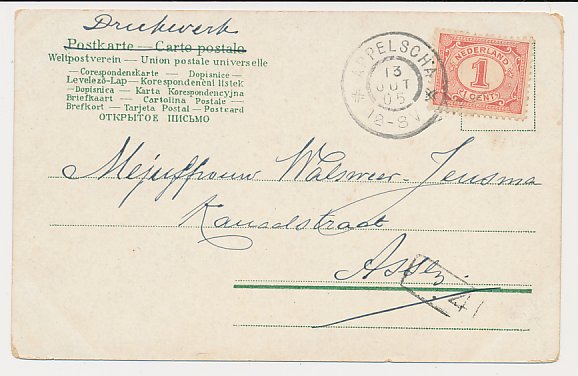 Drukwerk
Postkarte — Carte postale
Weltpostverein — Union postale universelle
— Corespondenzkarte — Dopisnice —
Levelező-Lap — Korespondenční lístek
— Dopisnica — Karta Korespondencyjna
Briefkaart — Cartolina Postale —
Brefkort — Tarjeta Postal — Postcard
ОТКРЫТОЕ ПИСЬМО
APPELSCHA
13
OCT
05
12-8V
NEDERLAND
1
CENT
Mejuffrouw Walsweer-Jensma
Kanaalstraat
Assen
41